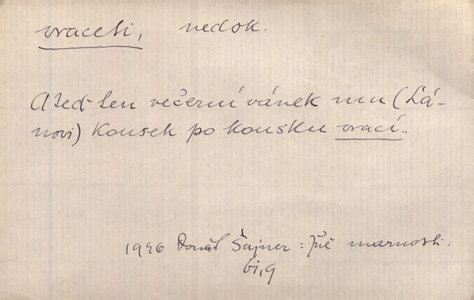 vraceti, nedok.
A teď ten večerní vánek mu (Ľá-
novi) kousek po kousku vrací..
1946 Donát Šajner: marnosti.
bi,9